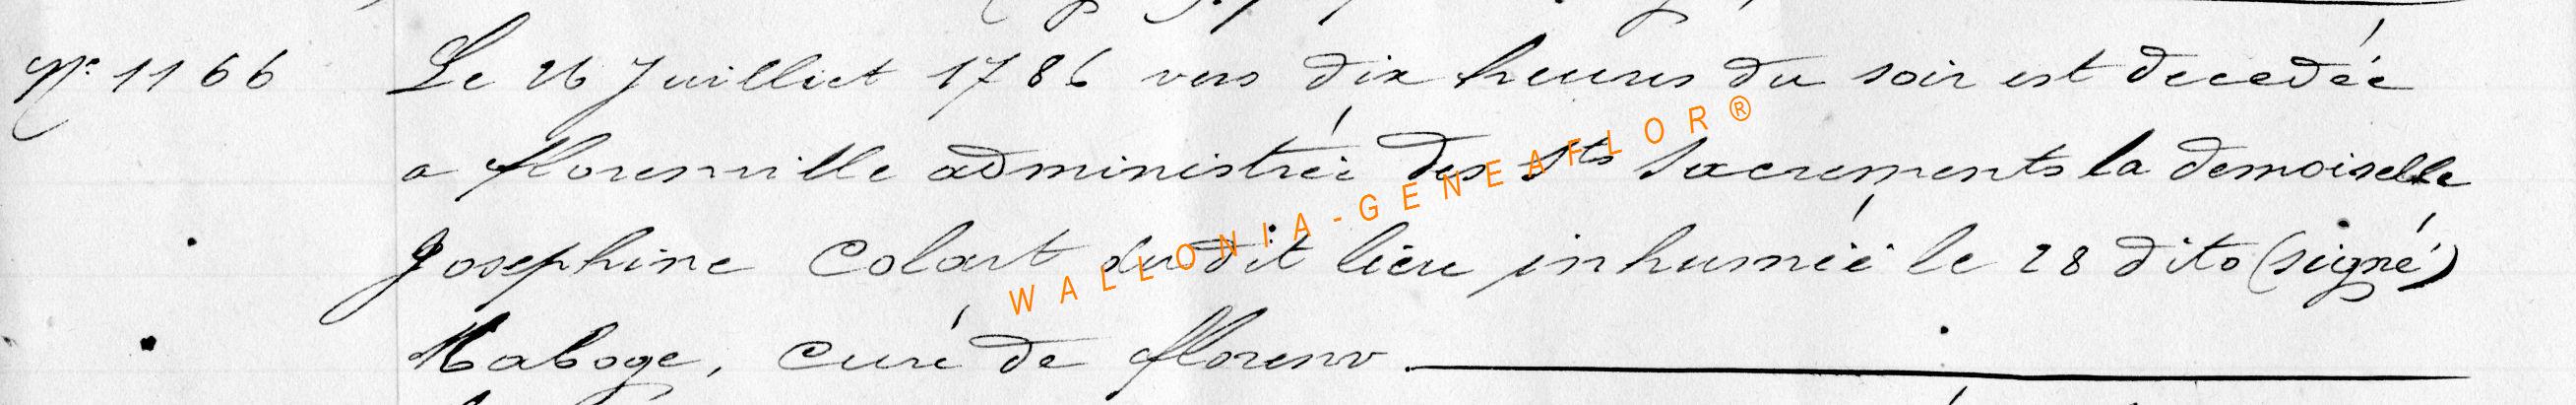 N° 1166 Le 26 Juilliet 1786 vers dix heures du soir est decedée
a florenville administrée des Sts Sacrements la demoiselle
Josephine Colart du dit lieu inhumée le 28 dito (signé)
Maboge, curé de florenv.
WALLONIA-GENEAFLOR®